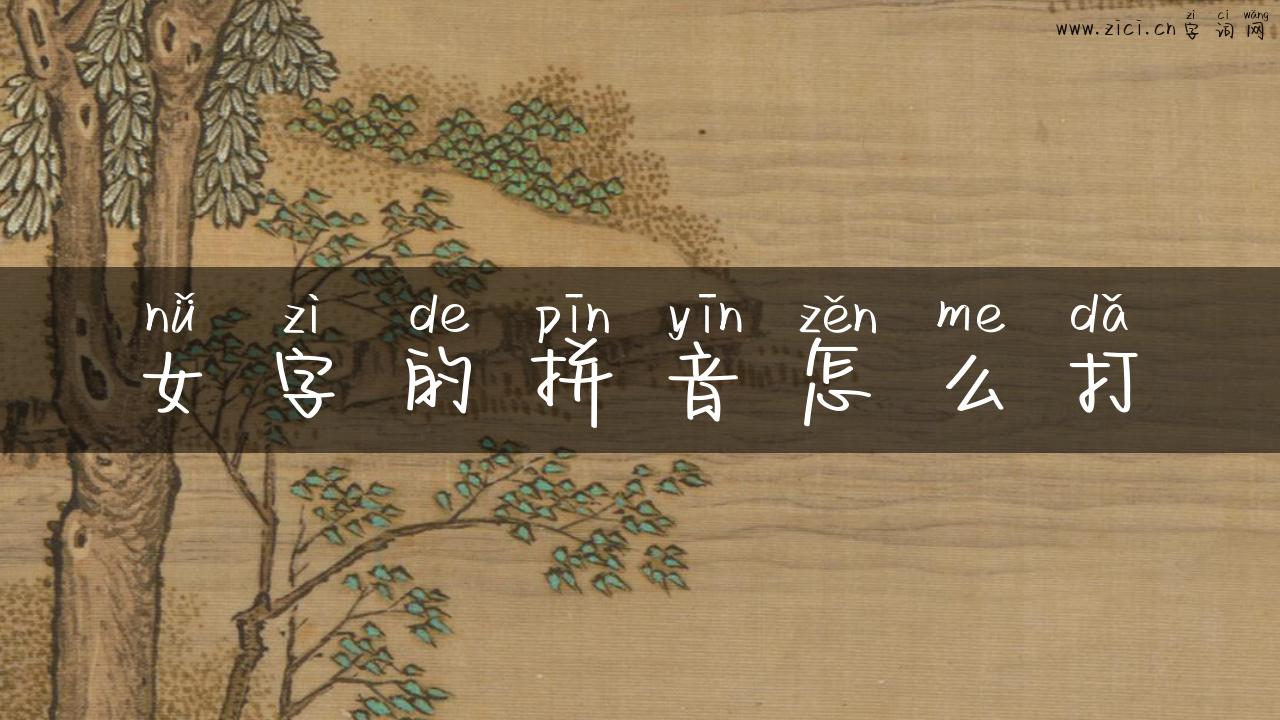 zì cí wǎng
www.zici.cn 字 词 网
nǚ zì de pīn yīn zěn me dǎ
女 字 的 拼 音 怎 么 打